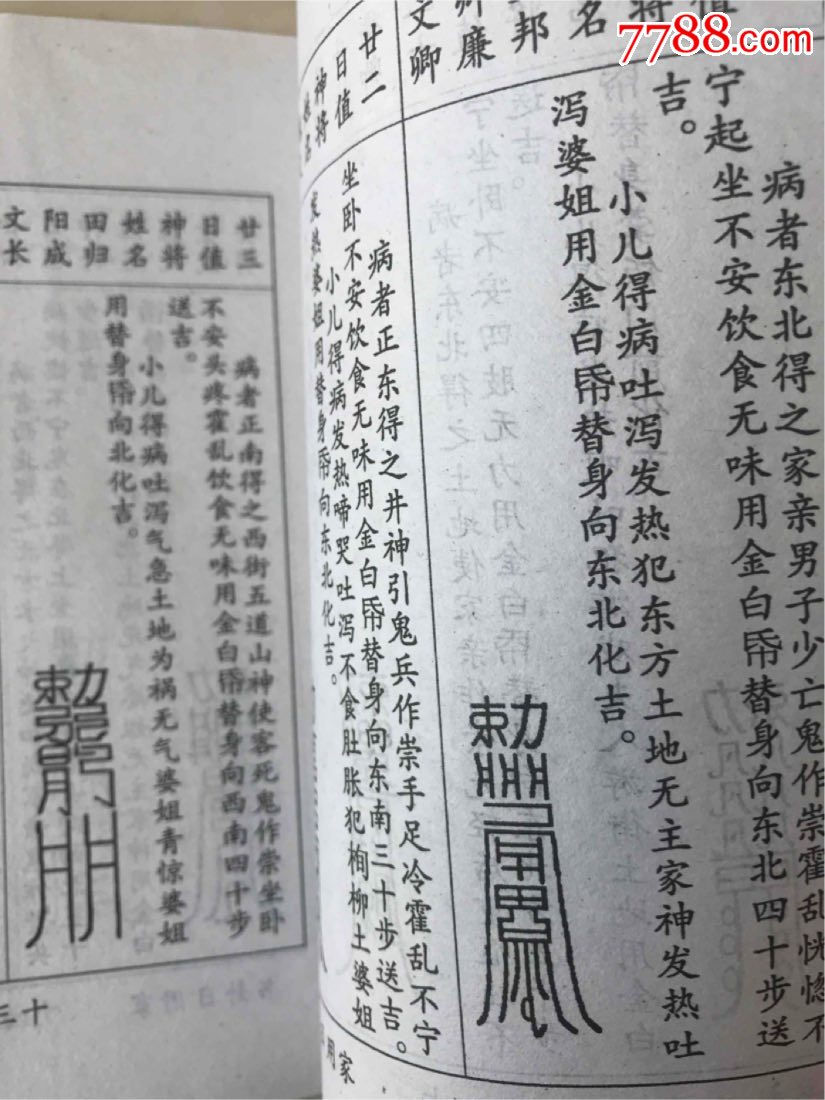 7788.com
值
将
名
邦
廉
文卿
病者东北得之家亲男子少亡鬼作祟霍乱恍惚不
宁起坐不安饮食无味用金白帋替身向东北四十步送
吉。
小儿得病吐泻发热犯东方土地无主家神发热吐
泻婆姐用金白帋替身向东北化吉。
廿二
日值
神将
病者正东得之井神引鬼兵作祟手足冷霍乱不宁
坐卧不安饮食无味用金白帋替身向东南三十步送吉。
小儿得病发热啼哭吐泻不食肚胀犯栒柳土婆姐
发热婆姐用替身帋向东北化吉。
用家
廿三
日值
神将
姓名
田归
阳成
文长
病者正南得之西街五道山神使客死鬼作祟坐卧
不安头疼霍乱饮食无味用金白帋替身向西南四十步
送吉。
小儿得病吐泻气急土地为祸无气婆姐青惊婆姐
用替身帋向北化吉。
三十